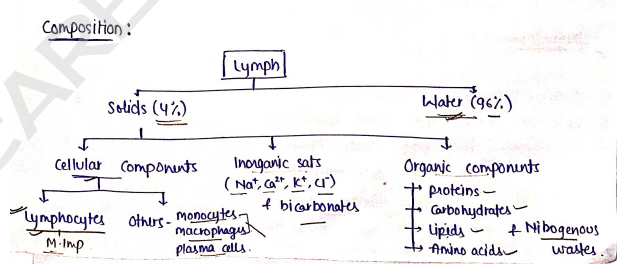 Composition :
Lymph
Solids (4%)
Water (96%)
Cellular components
Inorganic sats
Organic components
(Na⁺, Ca²⁺, K⁺, Cl⁻)
& bicarbonates
→ proteins
→ Carbohydrates
→ Lipids & Nibogenous
→ Amino acids wastes.
Lymphocytes
M.Imp
Others - monocytes
macrophages
plasma cells.